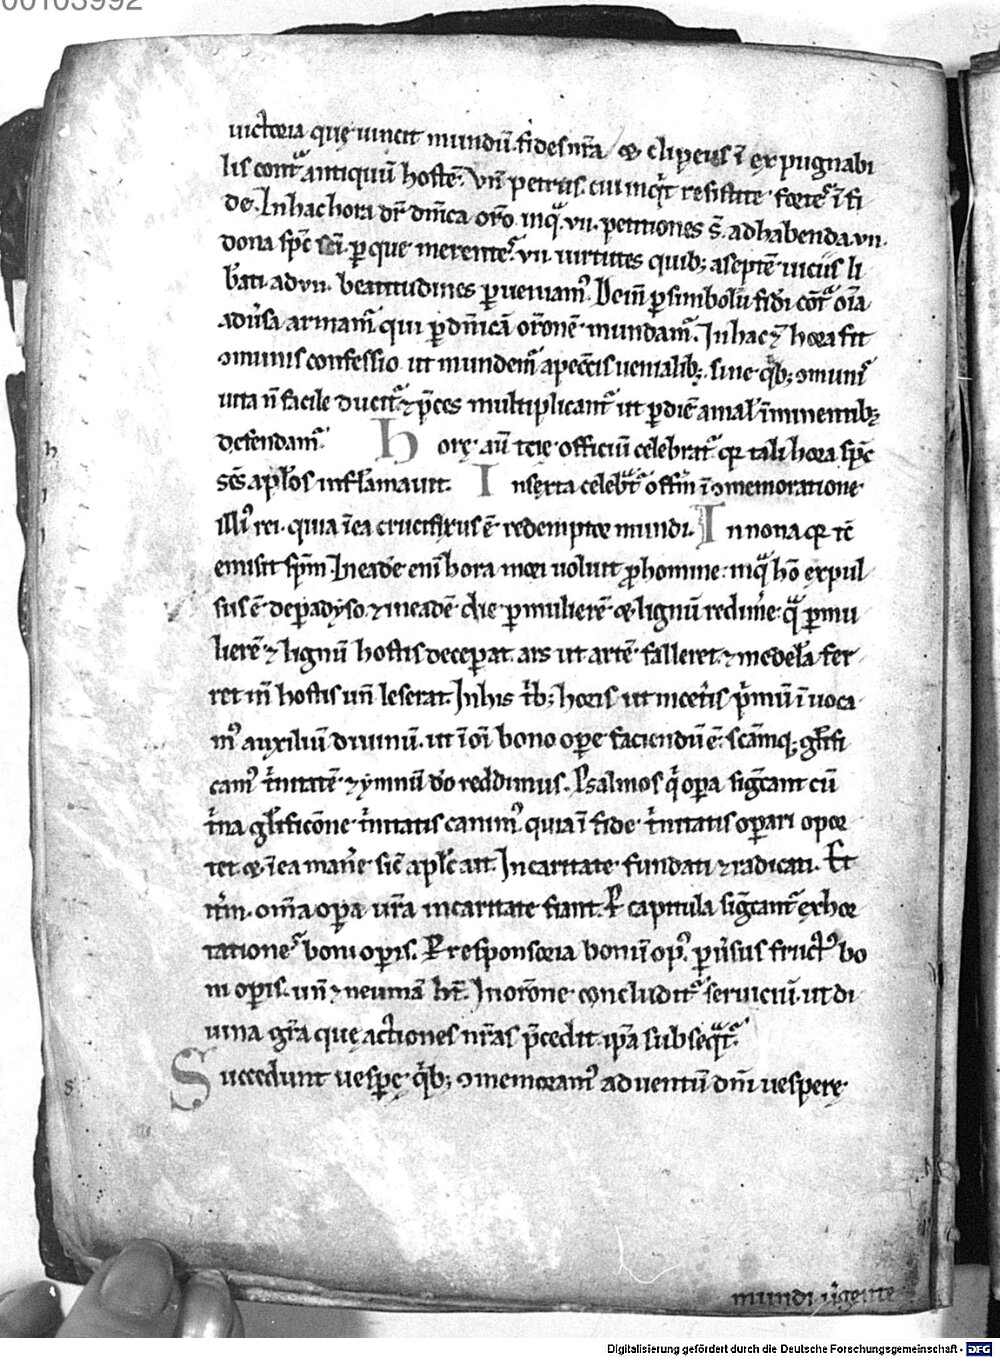 00103992
uictoria quę uincit mundū. fides nr̄a. & clipeus ī expugnabi
lis contͣ antiquū hostē. Vn̄ petrus. cui inqͥt resistite fortes ī fi
de. In hac hora dr̄ dn̄ica or̄o. inqͣ .vii. petitiones s̄. ad habenda .vii.
dona sp̄c sc̄i. ꝑ que merentes .vii. uirtutes quib; a septē uiciis li
b̄ati. ad .vii. beatitudines ꝑueniamꝰ. Dein̄ ꝑ simbolū fidei cōtͣ om̄ia
adūsa armamr̄. qui ꝑ dn̄icā or̄onē mundamr̄. In hac ⁊ hora fit
ꝯmunis confessio. ut mundemr̄ a pecc̄is uenialib;. sine qͥb; ꝯmunis
uita n̄ facile ducitr̄. ⁊ p̄ces multiplicantr̄ ut ꝑ diē a mal̄ īminentib;
defendamr̄. Horę aū tc̄ie officiū celebratr̄. qr̄ tali hora sp̄c
sc̄s apl̄os inflāmauit. In sexta celebr̄tr̄ offm̄ ī ꝯmemoratione
illiꝰ rei. quia īea crucifixus ē redemptor mundi. In nona qr̄ tc̄
emisit sp̄m. In eadē eni hora mori uoluit ꝓ homine. inqͣ hō expul
sus ē de paradyso. ⁊ in eadē die ꝑ mulierē & lignū redim̄e. qͣ ꝑ mu
lierē ⁊ lignū hostis deceperat. ars ut artē falleret. ⁊ medelā fer
ret in̄ hostis un̄ leserat. In his t̄b; horis ut in cet̄is p̄mū īuoca
mꝰ auxiliū diuinū. ut ī oī bono oꝑe faciendū ē. sc̄amq; gl̄ifi
camꝰ t̄nitatē ⁊ ymnū do reddimus. Psalmos qͥ oꝑa sigc̄ant cū
t̄na gl̄ificōne t̄nitatis canimꝰ. quia ī fide t̄nitatis operari opor
tet. & īea man̄e sic̄ apl̄c ait. In caritate fundati ⁊ radicati. Et
it̄m. om̄a oꝑa ur̄a in caritate fiant. P capitula sigc̄antr̄ exhor
tationes boni oꝑis. P responsoria boni opͥs. ꝑ ūsus fructꝰ bo
ni oꝑis. un̄ ⁊ neumā hn̄t. In or̄one concluditr̄ seruiciū. ut di
uina gr̄a quę actiones nr̄as p̄cedit. ip̄a subseqͣtr̄.
Succedunt uesꝑę. qͥb; ꝯmemoramꝰ aduentū dn̄i uespere
h
i
i
s
mundi ūgente
Digitalisierung gefördert durch die Deutsche Forschungsgemeinschaft - DFG